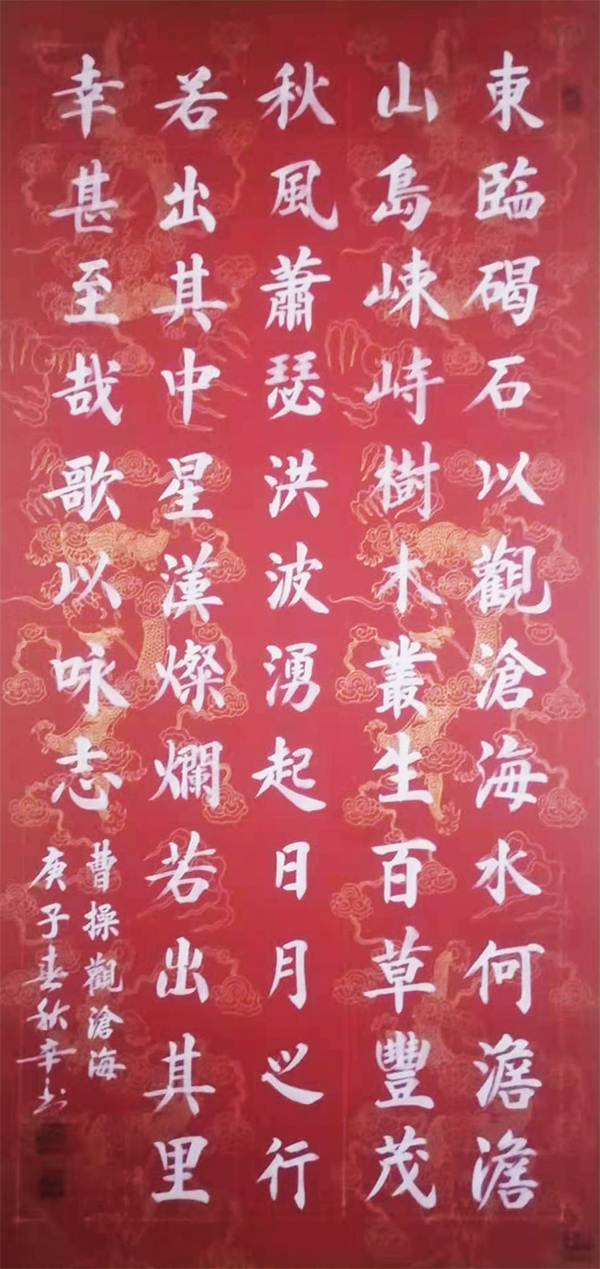 東臨碣石以觀滄海水何澹澹
山島崠峙樹木叢生百草豐茂
秋風蕭瑟洪波湧起日月之行
若出其中星漢燦爛若出其里
幸甚至哉歌以咏志
曹操觀滄海
庚子春秋辛书